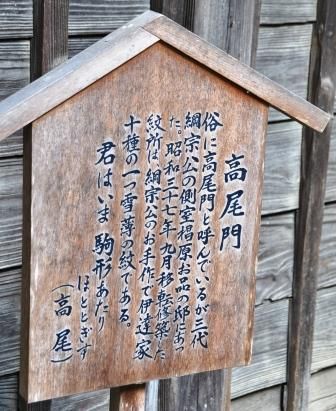 高尾門
俗に高尾門と呼んでいるが三代
綱宗公の側室椙原お品の邸にあっ
た。昭和三十七年九月移転修築した
紋所は、綱宗公のお手作で伊達家
十種の一つ雪薄の紋である。
君はいま 駒形あたり
ほととぎす
(高尾)